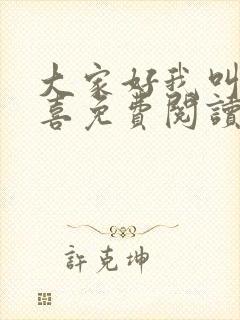 大家好我叫
喜免費閱讀
許克坤